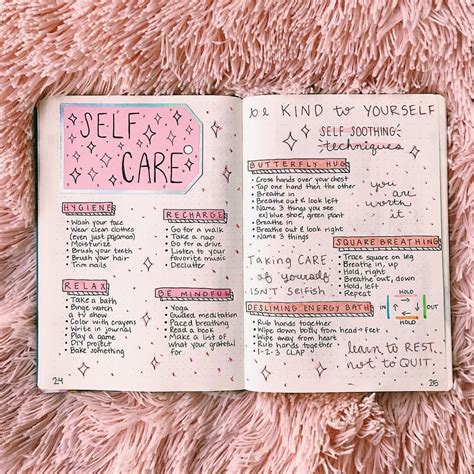 SELF
CARE
HYGIENE
• Wash your face
• Wear clean clothes
(even just pajamas)
• Moisturize
• Brush your teeth
• Brush your hair
• Trim nails
RECHARGE
• Go for a walk
• Take a nap
• Go for a drive
• Listen to your
favorite music
• Declutter
RELAX
• Take a bath
• Binge watch
a tv show
• Color with crayons
• Write in journal
• Play a game
• DIY project
• Bake something
BE MINDFUL
• Yoga
• Guided meditation
• Paced breathing
• Read a book
• Make a list of
what your grateful
for
24
be KIND to YOURSELF
SELF SOOTHING
techniques
BUTTERFLY HUG
• Cross hands over your chest
• Tap one hand then the other
• Breathe in
• Breathe out & look left
• Name 3 things you see
ex) blue shoe, green plant
• Breathe in
• Breathe out & look right
• Name 3 things
you
are
worth
it
SQUARE BREATHING
• Trace square on leg
• Breathe in, up
• Hold, right
• Breathe out, down
• Hold, left
• Repeat
Taking CARE
of yourself
ISN'T SELFISH
HOLD
IN
OUT
HOLD
DESLIMING ENERGY BATH
• Rub hands together
• Wipe down body from head → feet
• Wipe away from heart
• Rub hands together
• 1-2-3 CLAP
learn to REST,
not to QUIT.
25